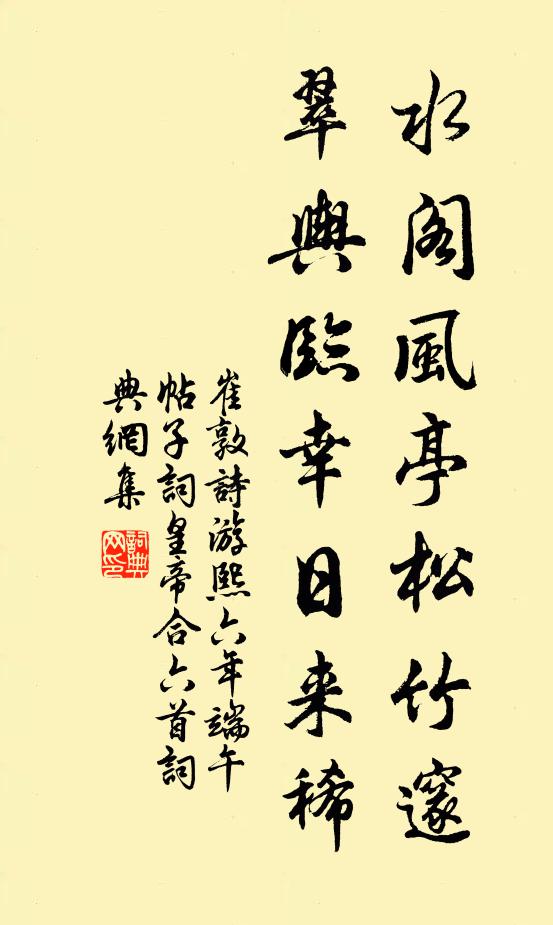 水閣風亭松竹邃
翠輿臨幸日来稀
崔敦詩游熙六年端午
帖子詞皇帝合六首詞
典網集
詞典
网印